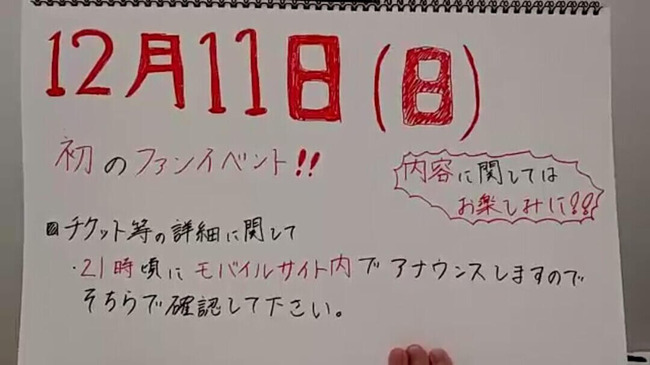 12月11日(日)
初のファンイベント!!
内容に関しては
お楽しみに!!
チケット等の詳細に関して
・21時頃にモバイルサイト内でアナウンスしますので
そちらで確認して下さい。